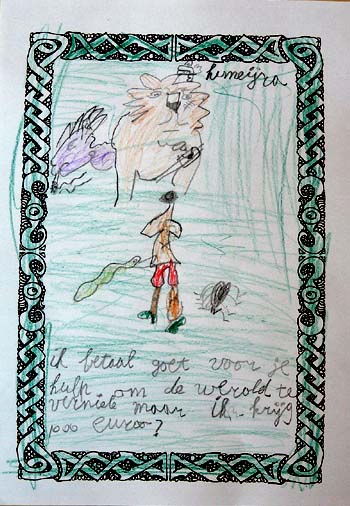 humeijra
ik betaal goet voor je
hulp om de werold te
verniele maar ik krijg
1000 euroo?